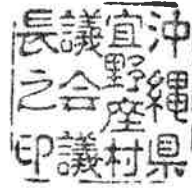 沖縄県
宜野座村
議会議
長之印